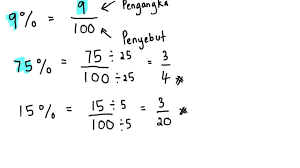 9% = 9/100 Pengangka
Penyebut
75% = 75 ÷ 25 / 100 ÷ 25 = 3/4 *
15% = 15 ÷ 5 / 100 ÷ 5 = 3/20 *